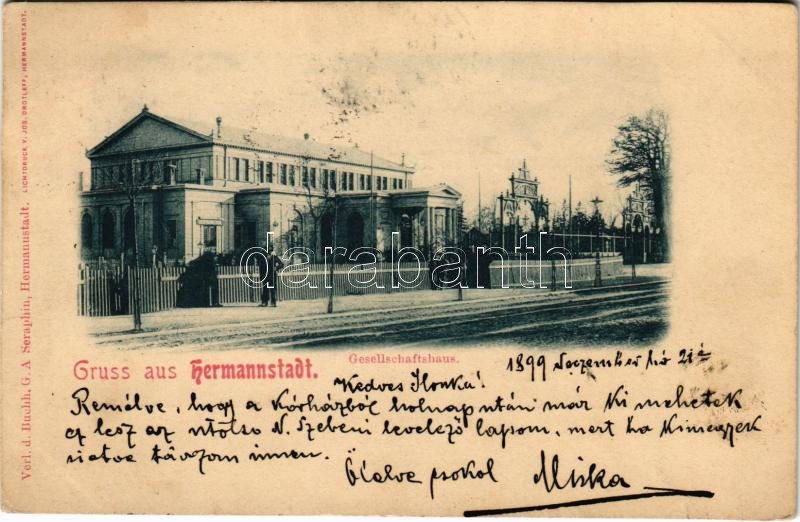 LICHTDRUCK V. JOS. DROTLEFF, HERMANNSTADT.
Verl. d. Buchh. G. A Seraphin, Hermannstadt.
darabanth
Gesellschaftshaus.
Gruss aus Hermannstadt.
1899 Deczember hó 21 én
Kedves Ilonka!
Remélve, hogy a Kórházból holnap után már Ki mehetek
ez lesz az utolsó N. Szebeni levelező lapom, mert ha Kimegyek
sietve távozom innen.
Ölelve csokol Miska